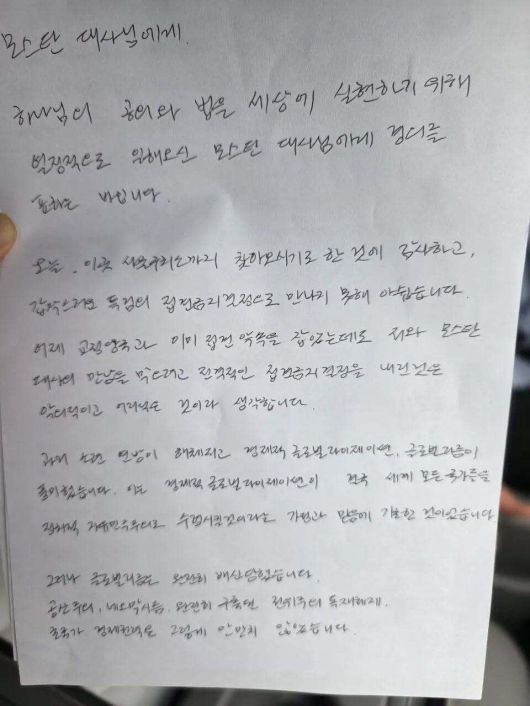 모스탄 대사님에게.
하나님의 공의와 법을 세상에 실현하기 위해
열정적으로 일해오신 모스탄 대사님에게 경의를
표하는 바입니다.
오늘, 이곳 서울구치소까지 찾아오시기로 한 것에 감사하고,
갑작스러운 특검의 접견금지결정으로 만나지 못해 아쉽습니다.
어제 교정당국과 이미 접견 약속을 잡았는데도 저와 모스탄
대사의 만남을 막으려고 전격적인 접견금지결정을 내린것은
악의적이고 어리석은 것이라 생각합니다.
과거 소련 연방이 해체되고 경제적 글로벌라이제이션, 글로벌리즘이
풍미했습니다. 이는 경제적 글로벌라이제이션이 전국 세계 모든 국가들을
정치적 자유민주주의로 수렴시킬것이라는 가정과 믿음에 기초한 것이었습니다
그러나 글로벌리즘은 완전히 배신당했습니다.
공산주의, 네오막시즘, 완전히 구축된 전체주의 독재체제,
초국가 경제권력은 그렇게 만만치 않았습니다.